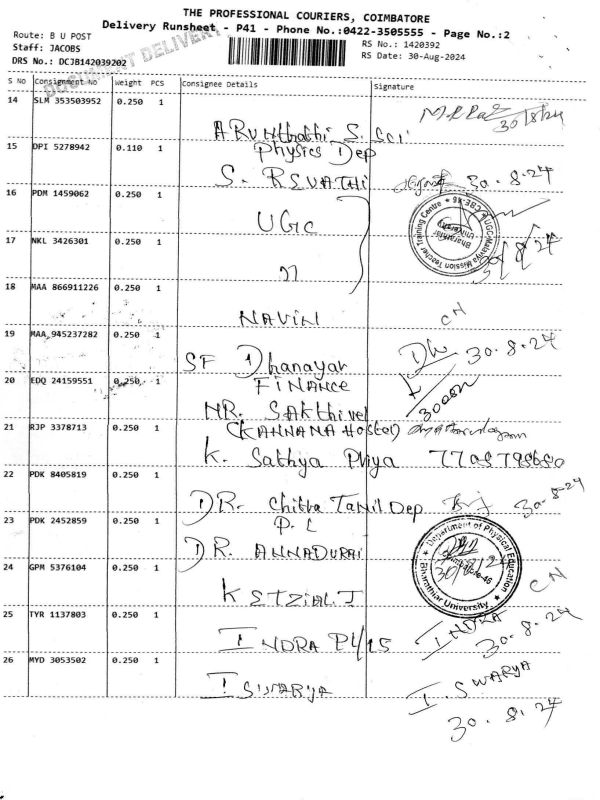 THE PROFESSIONAL COURIERS, COIMBATORE
Delivery Runsheet - P41 - Phone No.:0422-3505555 - Page No.:2
Route: B U POST
RS No.: 1420392
Staff: JACOBS
RS Date: 30-Aug-2024
DRS No.: DCJB142039202
DOCUMENT DELIVERY
S No Consignment No Weight PCS Consignee Details Signature
14 SLM 353503952 0.250 1
30/8/24
ARUNthathi S.
15 DPI 5278942 0.110 1 Physics Dep
S. REVATHI 30.8.24
16 PDM 1459062 0.250 1
UGC
UGC-Malaviya Mission Teacher Training Centre
Bharathiar University
CBE-46
17 NKL 3426301 0.250 1
30/8/24
18 MAA 866911226 0.250 1
NAVIN CN
19 MAA 945237282 0.250 1
SF Dhanayan 30.8.24
20 EDQ 24159551 0.250 1 FINANCE
MR. SAKthivel
21 RJP 3378713 0.250 1 (KANNANA Hostel)
K. Sathya Priya
22 PDK 8405819 0.250 1
DR. Chitra Tamil Dep 30.8.24
23 PDK 2452859 0.250 1
DR. ANNADURAI
Department of Physical Education
Bharathiar University
24 GPM 5376104 0.250 1
CN
25 TYR 1137803 0.250 1
INDRA INDRA
30.8.24
26 MYD 3053502 0.250 1
ISWARYA I. SWARYA
30.8.24